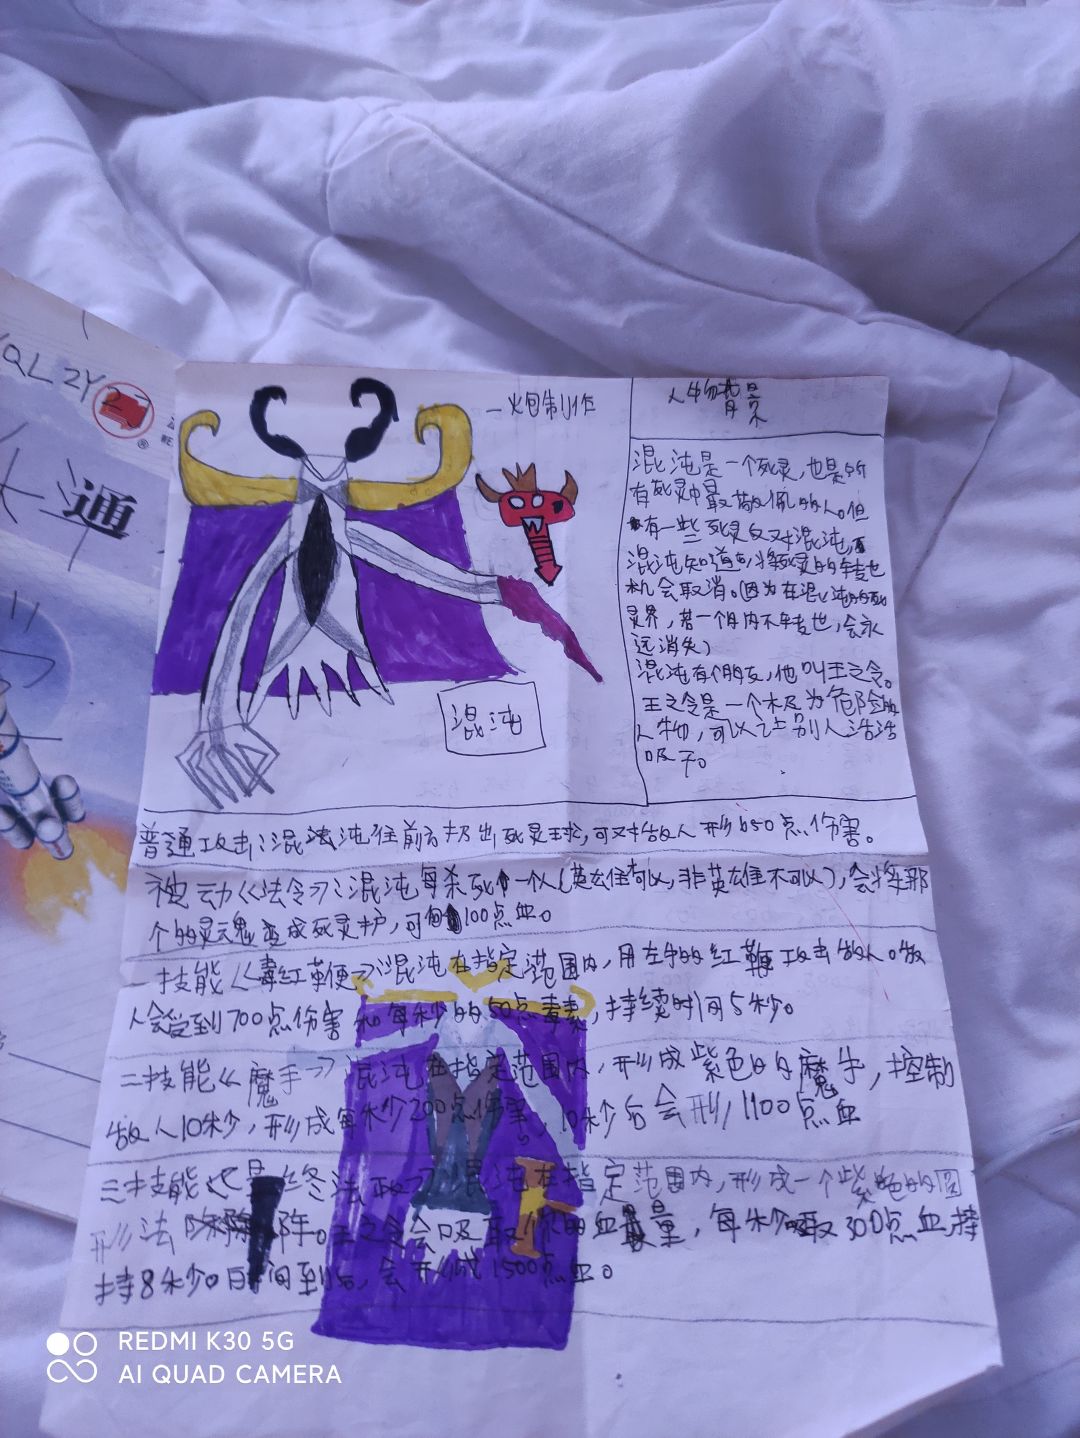 QLZY27
通
一炮制作
人物背景
混沌是一个死灵,也是所
有死灵中最敬佩的人。但
有一些死灵反对混沌,
混沌知道后,将死灵的转世
机会取消。因为在混沌的死
灵界,若一个月内不转世,会永
远消失)
混沌有个朋友,他叫王之令。
王之令是一个极为危险的
人物,可以让别人活活
吸干。
混沌
普通攻击:混沌往前方扔出死灵球,可对敌人形650点伤害。
被动《法令》:混沌每杀死一个人(英雄可以,非英雄不可以),会将那
个的灵魂变成死灵护,可100点血。
一技能《毒红鞭》混沌在指定范围内,用左手的红鞭攻击敌人。敌
人会受到700点伤害和每秒的50点毒素,持续时间5秒。
二技能《魔手》混沌在指定范围内,形成紫色的魔手,控制
敌人10秒,形成每秒200点伤害,10秒后会形1100点血
三技能《最终法》混沌在指定范围内,形成一个紫色的圆
形法阵。王之令会吸取你的血量,每秒吸取300点血,持
持8秒。时间到后,会形成1500点血。
REDMI K30 5G
AI QUAD CAMERA